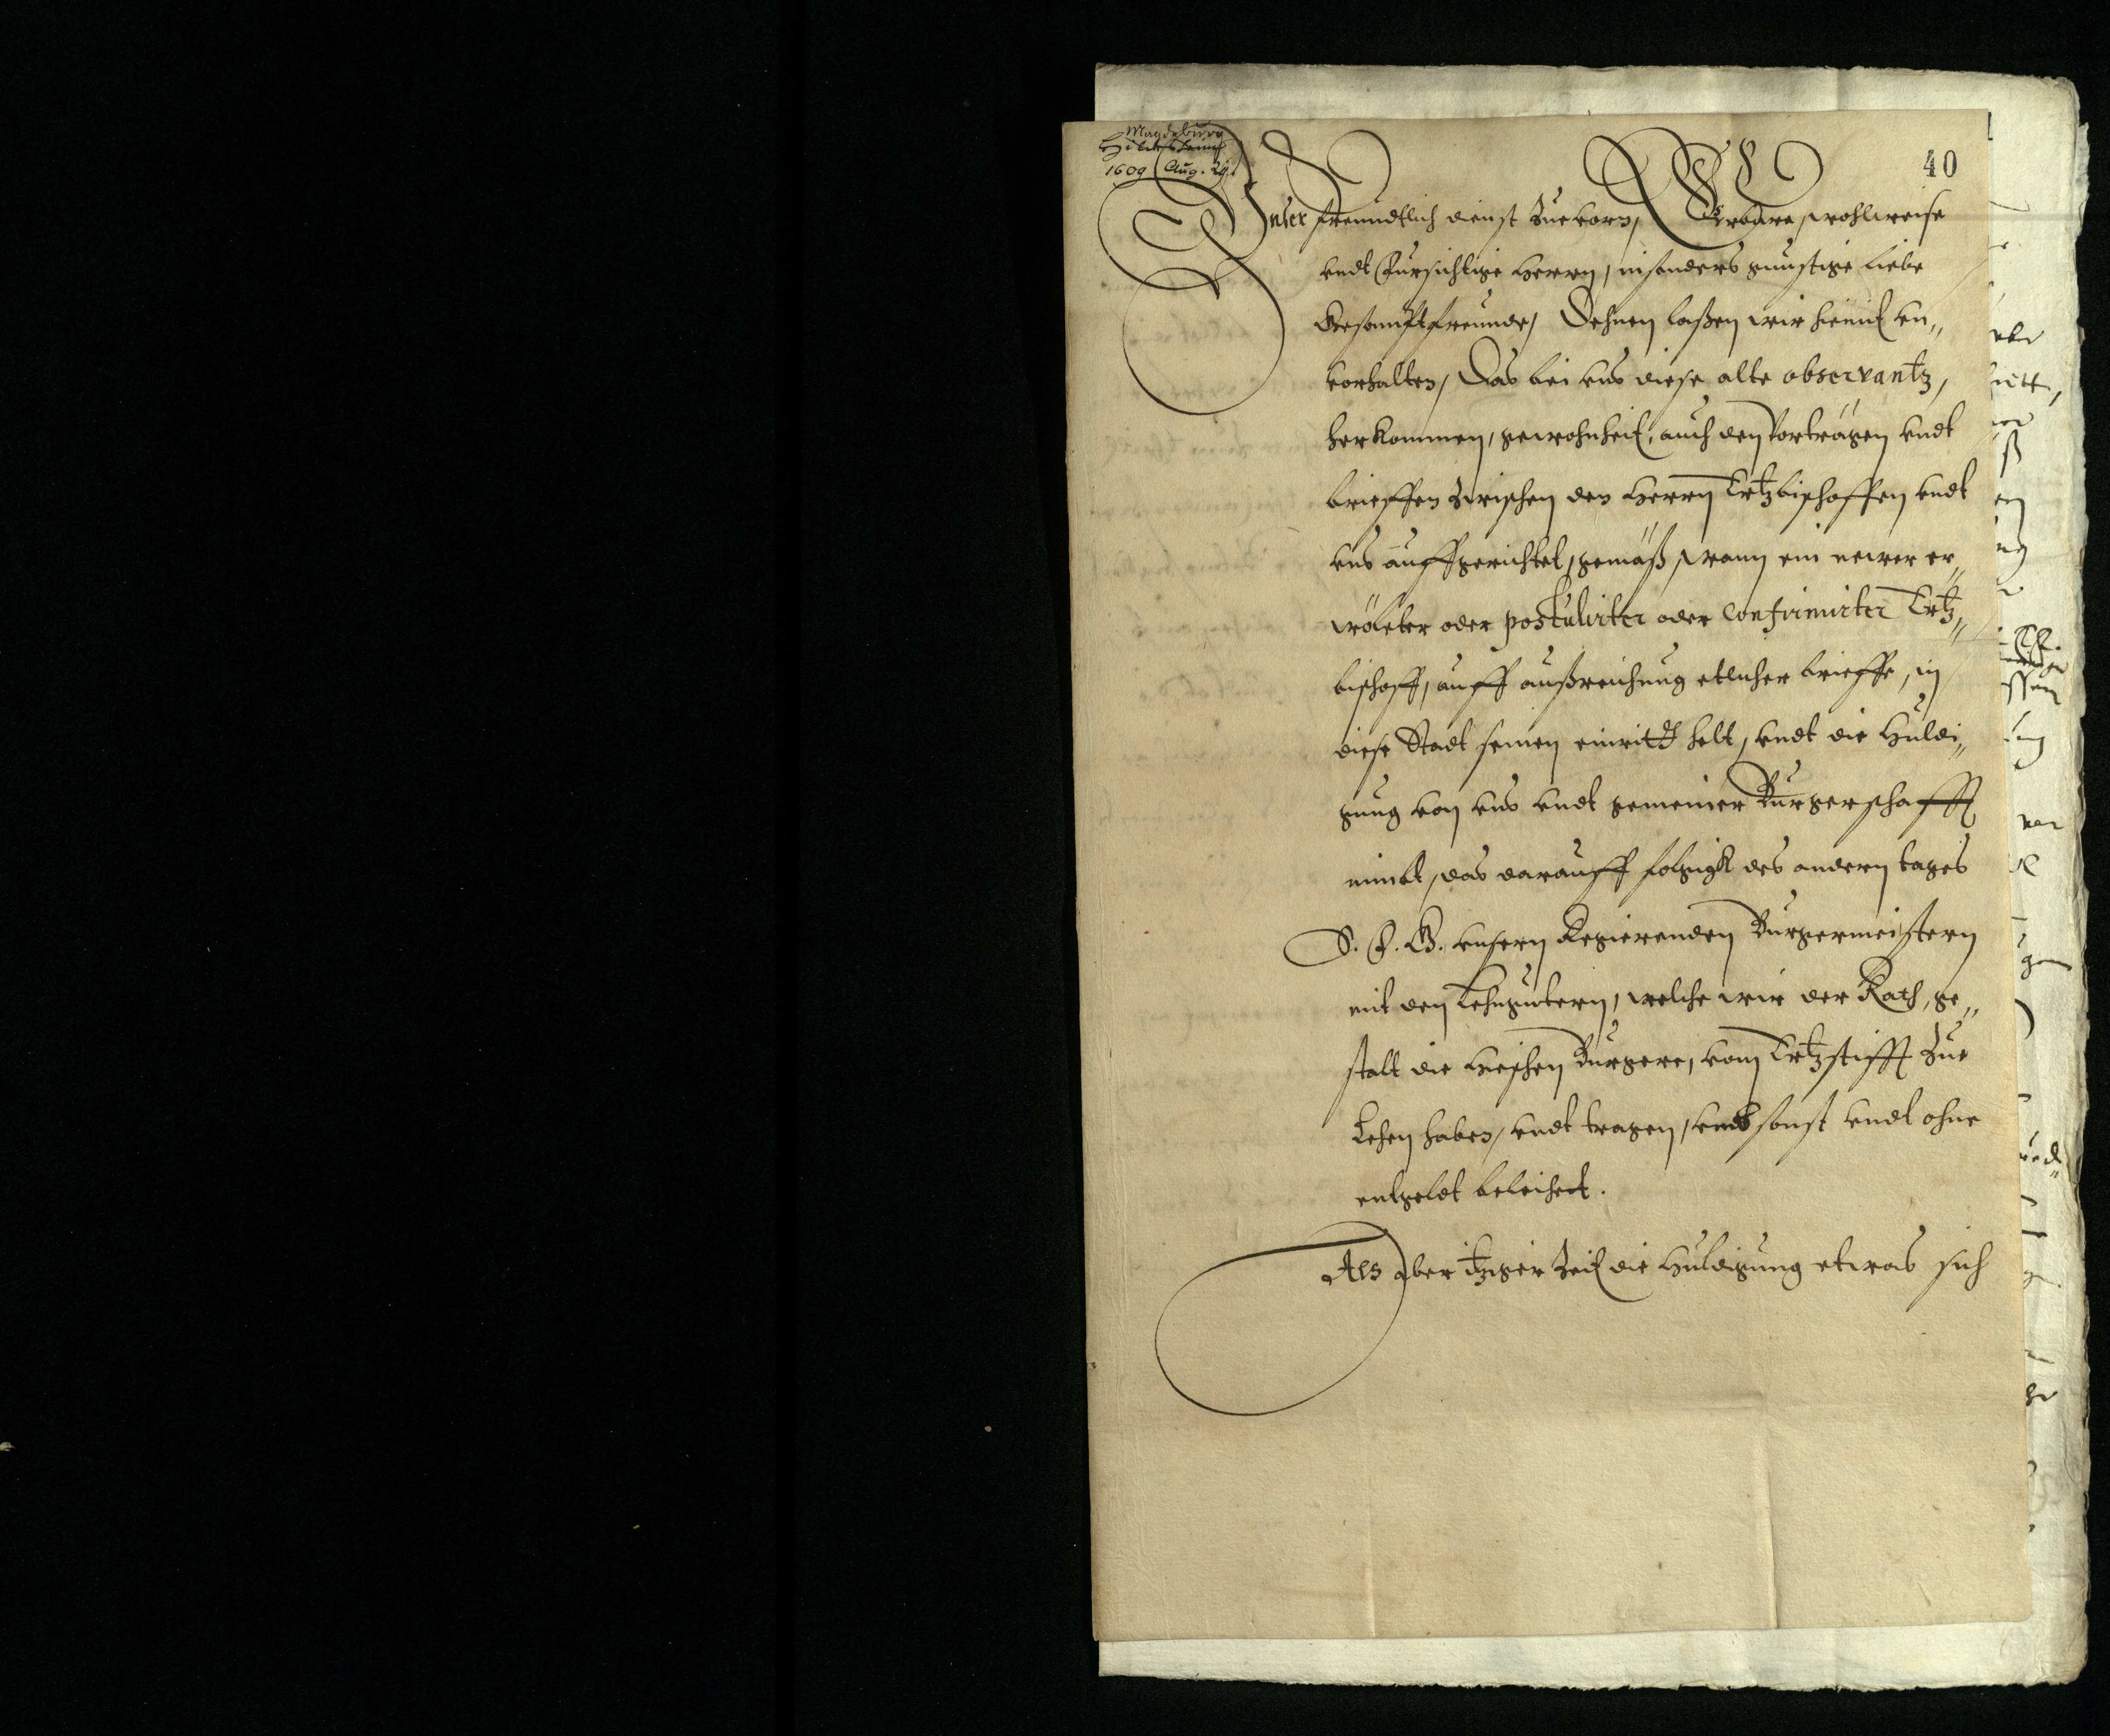 Magdeburg
Hildesheim
1609 Aug. 29.
40
Vnser freundtlich dienst zuevorn, Erbare, wohlweise
vndt Fursichtige Herrn, insonders gunstige liebe
Gesamptfreunde, Dehnen laßen wir hiemit vn„
vorhalten, Das bei vns diese alte observantz,
herkommen, gewohnheit, auch den Vorträgen vndt
brieffen zwischen den Herrn Ertzbischoffen vndt
vns auffgerichtet, gemäß, wann ein newer er„
wälter oder postulirter oder confirmirter Ertz„
bischoff, auff außreichung etlicher brieffe, in
diese Stadt seinen einridt helt, vndt die Huldi„
gung von vns vndt gemeiner Burgerschafft
nimbt, das darauff folgigk des andern tages
S. F. G. vnsern Regierenden Burgermeistern
mit den Lehngutern, welche wir der Rath, ge„
stalt die Hiesigen Burgere, vom Ertzstifft zue
Lehen haben, vndt tragen, vmbsonst vndt ohne
entgeldt beleihet.
Als aber itziger Zeit die Huldigung etwas sich